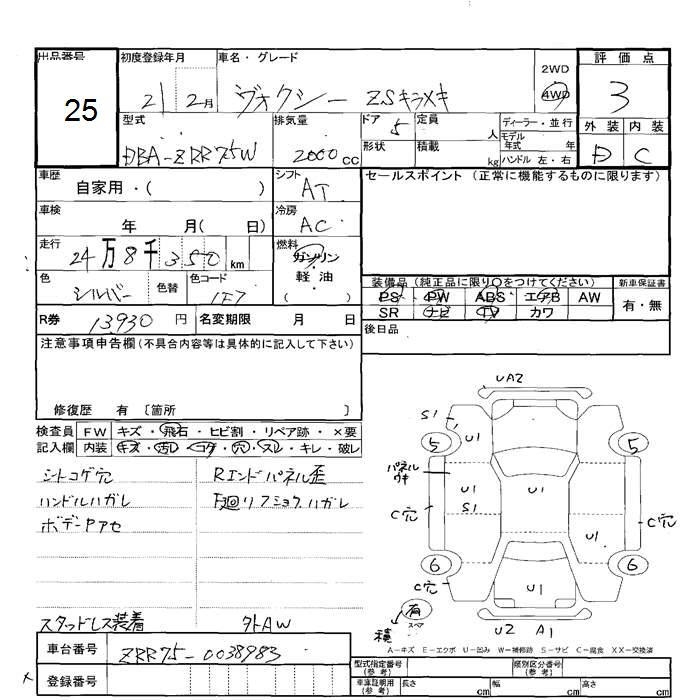 出品番号 初度登録年月 車名・グレード 2WD 評価点
25 21 2月 ヴォクシー ZSキラメキ 4WD 3
型式 排気量 ドア 定員 ディーラー・並行 外装 内装
DBA-ZRR75W 2000cc 5 人 モデル年式 年 D C
形状 積載 kg ハンドル 左・右
車歴 シフト セールスポイント (正常に機能するものに限ります)
自家用・( ) AT
車検 冷房
年 月( 日) AC
走行 燃料
24万8千350km ガソリン
軽油
色 色替 色コード ( ) 装備品 (純正品に限り○をつけてください) 新車保証書
シルバー 1F7 PS PW ABS エアB AW 有・無
R券 13930円 名変期限 月 日 SR ナビ TV カワ
注意事項申告欄(不具合内容等は具体的に記入して下さい) 後日品
修復歴 有 〔箇所 〕
検査員 FW キズ・飛石・ヒビ割・リペア跡・×要
記入欄 内装 キズ・汚レ・コゲ・穴・スレ・キレ・破レ
シートコゲ穴 Rエンドパネル歪
ハンドルハガレ 下廻リフショクハガレ
ボデーアセ
スタッドレス装着 外AW
UA2
S1
U1
5 5
パネルウキ
U1 U1
S1
C穴 U1 C穴
6 6
C穴 U1
有
スペア
積
U2 A1
A−キズ E−エクボ U−凹み W−補修跡 S−サビ C−腐食 XX−交換済
車台番号 ZRR75-0038983 型式指定番号(参考) 類別区分番号(参考)
登録番号 車庫証明用(参考) 長さ cm 幅 cm 高さ cm